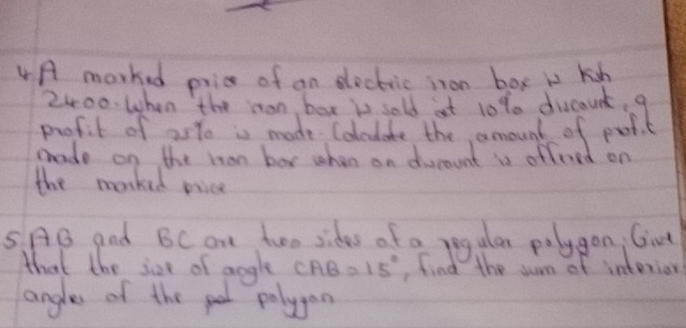 4. A marked price of an electric iron box is Ksh
2400. When the iron box is sold at 10% discount, a
profit of 25% is made. Calculate the amount of profit
made on the iron box when on discount is offered on
the marked price
5. AB and BC are two sides of a regular polygon. Give
that the size of angle CAB = 15°, find the sum of interior
angles of the polygon